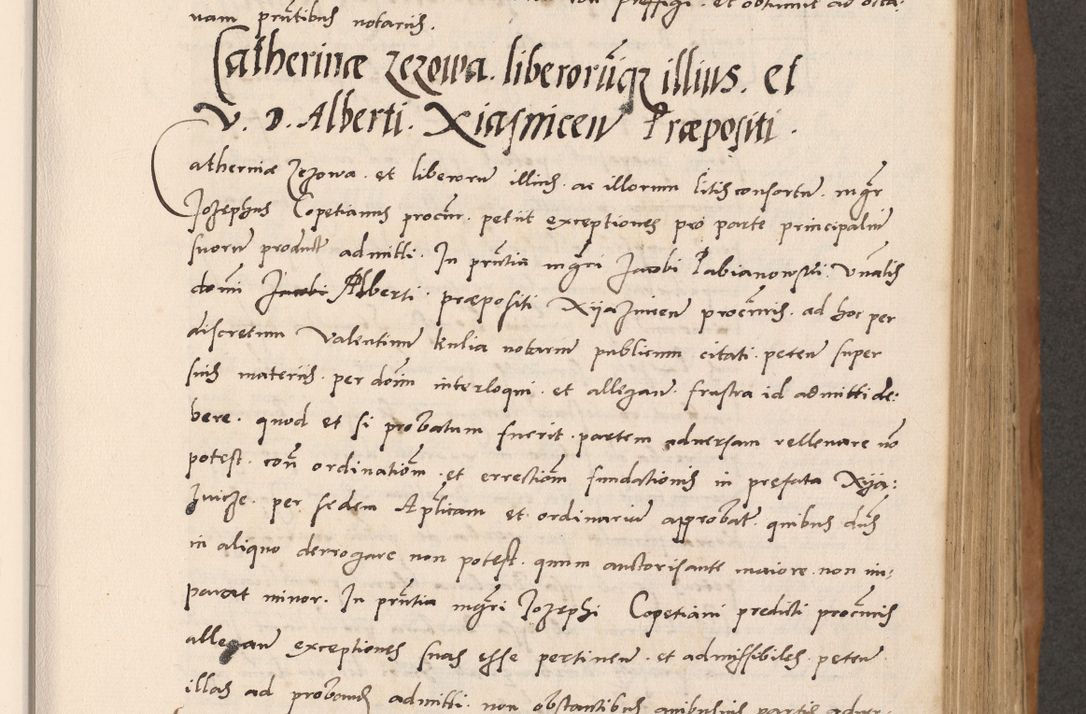 nam prn̄tibus notariis.
Catherinæ Zezowa. liberorūq illius. et
V. D. Alberti. Xiasnicen Præpositi.
Catherinæ Zezowa. et liberorum illius. ac illorum litis consortū. mgr̄
Jozephus Copetianus procūr. petiit exceptiones pro parte principaliū
suorum product admitti. In prn̄tia mgr̄i Jacobi Pabianowski. V
domi Jacobi Alberti. præpositi Xyaznicen procūris. ad hoc per
discretum Valentinum Kulia notarium publicum citati. peten super
suis materiis. per dom̄ interloqui. et allegan frustra id admitti de:
bere. quod et si probatum fuerit. partem adversam rellevare nō
potest. con ordinationē. et errectionē fundationis in prefata Xyą:
znicze. per sedem Ap̄licam et ordinarium approbat quibus dūs
in aliquo derrogare non potest. quum auctorisante maiore. non im¬
parat minor. In prn̄tia mgr̄i Jozephi Copetiani predicti procūris
allegan exceptiones suas esse pertinen. et admissibiles. peten
illas ad proband admitti. non obstantibus quibusuis partis adver: